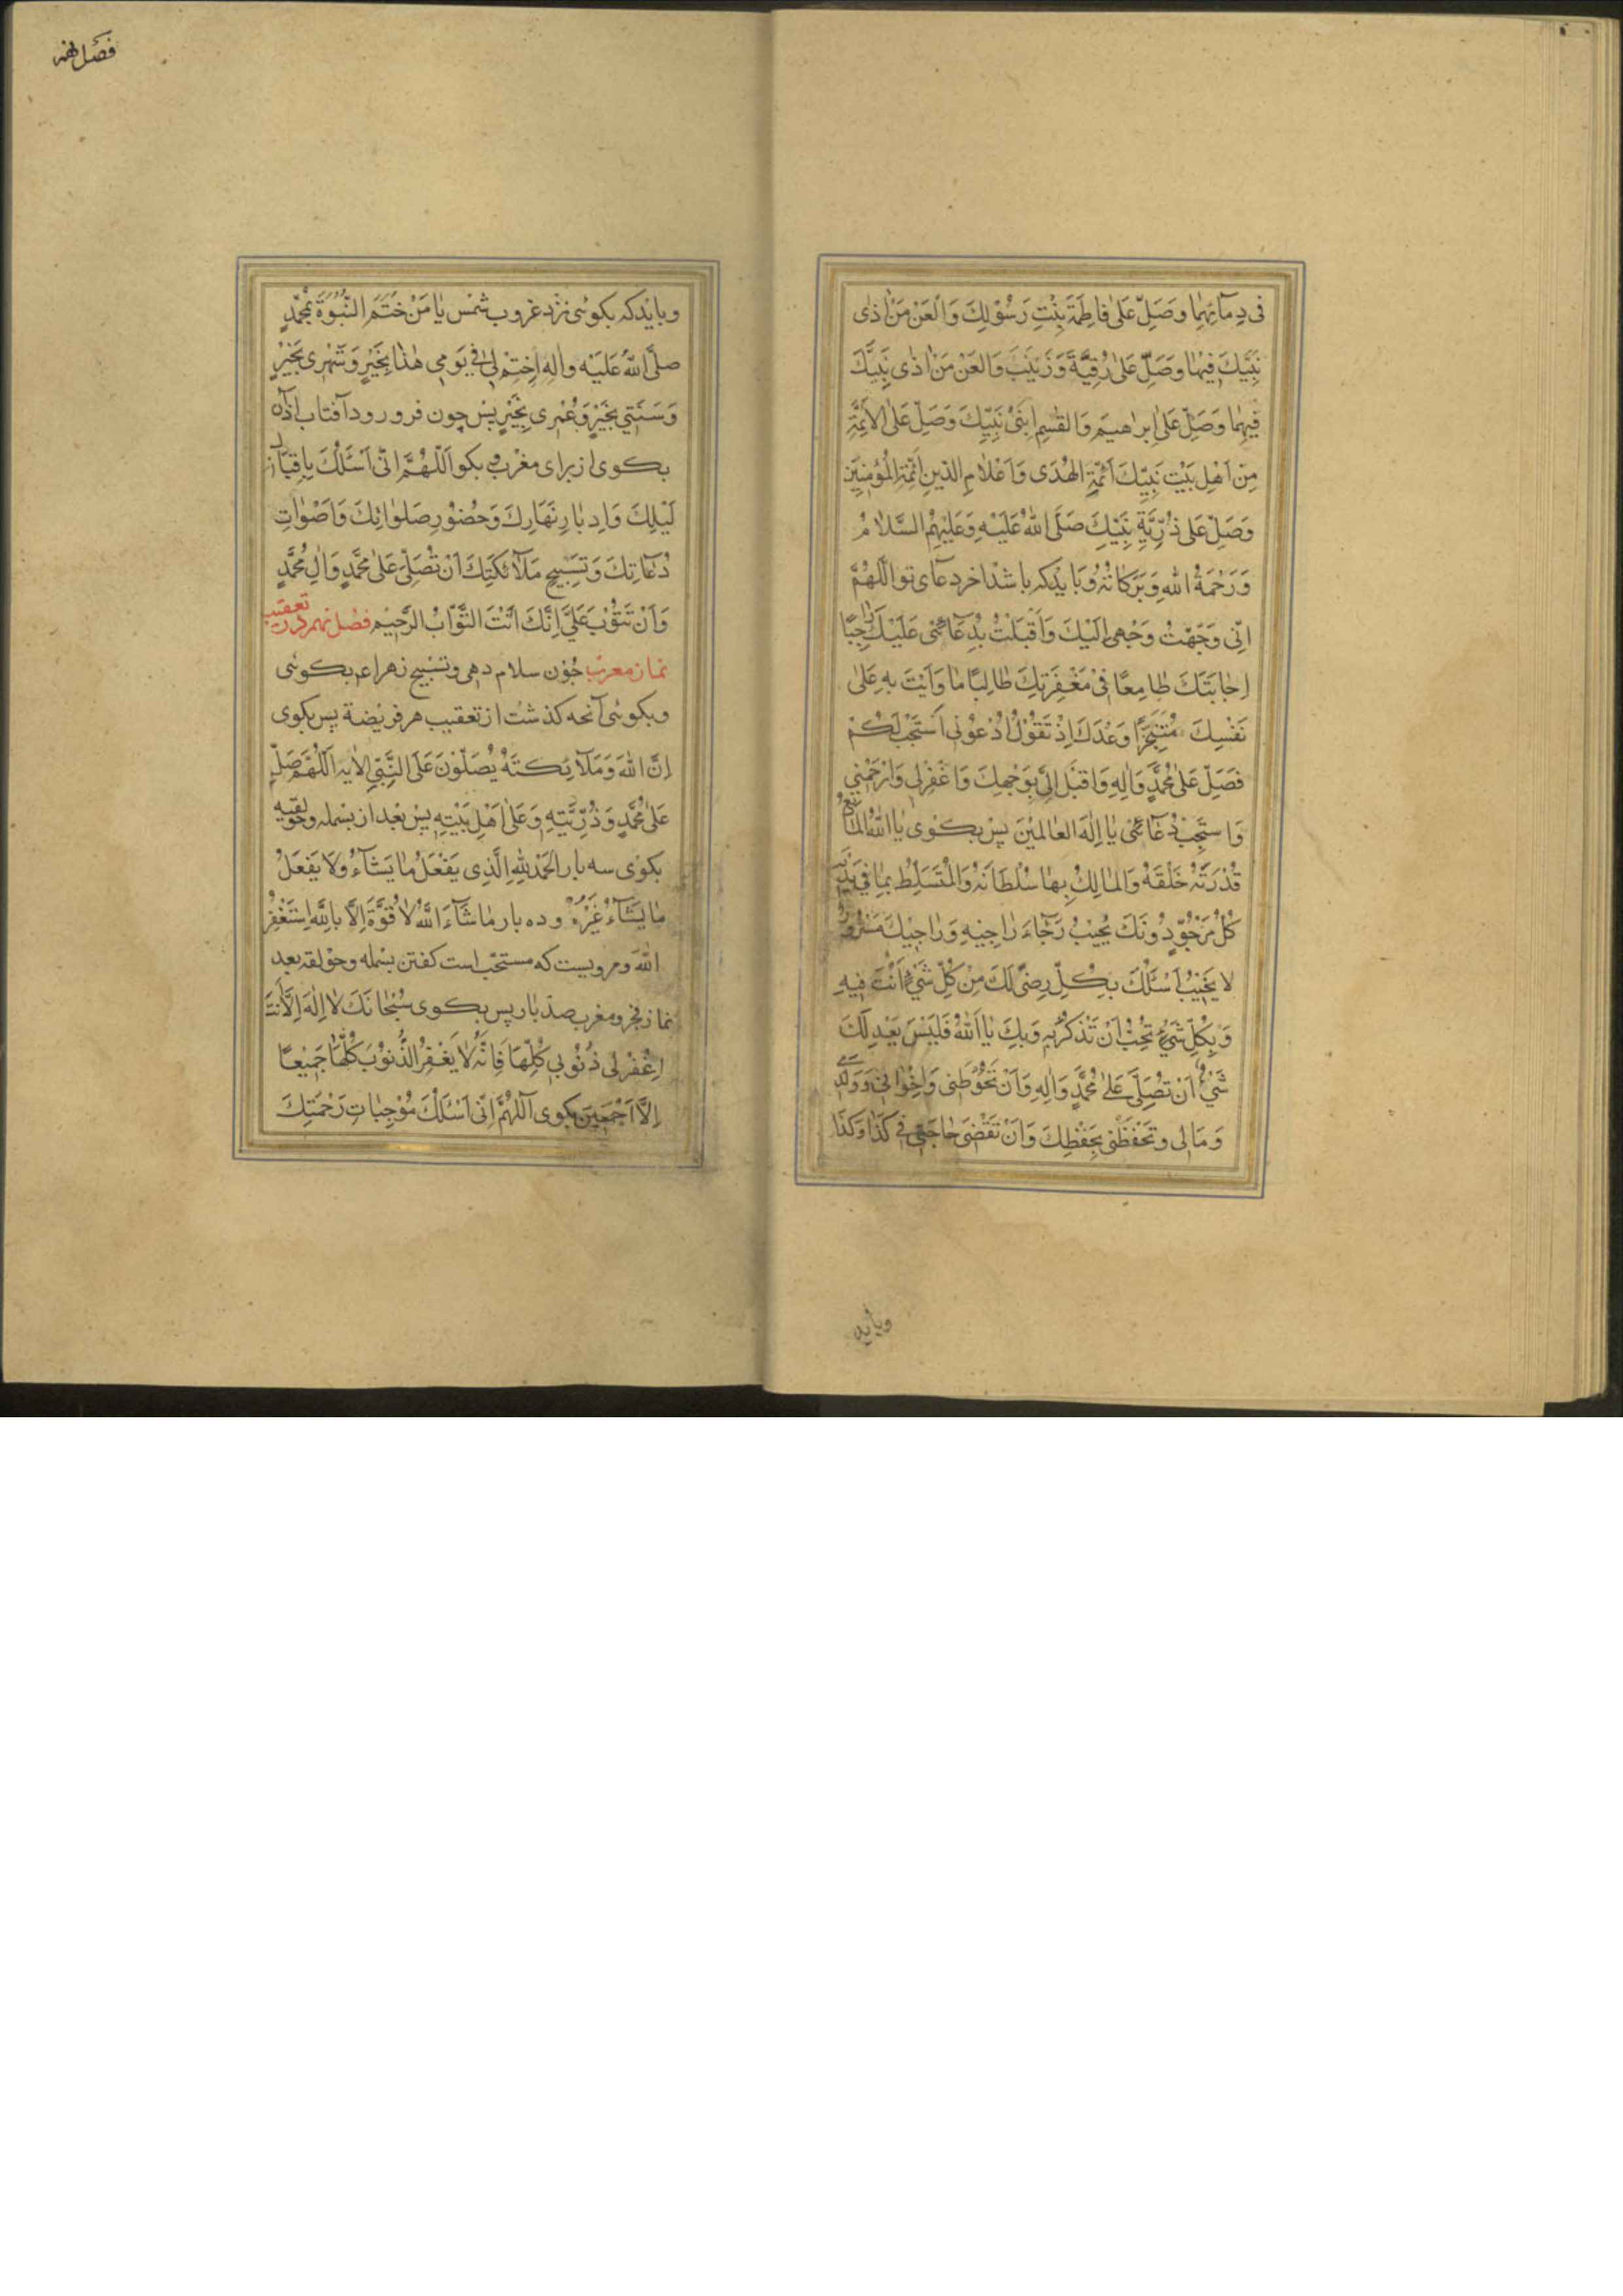 فى دِمآئِهِمٰا وصَلِّ عَلىٰ فاطِمَةَ بِنْتِ رَسُوْلِكَ وَالْعَنْ مَنْ اٰذٰى
نَبِيَّكَ فِيْهٰا وصَلِّ عَلىٰ رُقِيَّةَ وَزَيْنَبَ وَالعَنْ مَنْ اٰذٰى نَبِيَّكَ
فِيهِمٰا وَصَلِّ عَلىٰ اِبرٰاهيمَ وَالقٰسِمِ ابْنَىْ نَبِيِّكَ وَصَلِّ عَلىٰ الاَئِمَّةِ
مِنْ اَهْلِ بَيْتِ نَبِيِّكَ اَئِمَّةِ الهُدَى وَاَعْلٰامِ الدّينِ اَئِمَّةِ الْمُؤْمِنِيْنَ
وَصَلِّ عَلىٰ ذُرِّيَّةِ نَبِيِّكَ صَلَّى اللهُ عَلَيْهِ وَعَلَيْهِمُ السَّلٰامُ
وَرَحْمَةُ اللهِ وَبَرَكاتُهُ وُبَايَدْكه باشد اخر دعآى تو اللّهُمَّ
اِنّى وَجَّهْتُ وَجْهى اِلَيْكَ وَاَقْبَلْتُ بِدُعَائى عَلَيْكَ رٰاجِيًا
اِجٰابَتَكَ طٰامِعًا فىْ مَغْفِرَتِكَ طٰالِبًا مٰا وَاَيْتَ بِهِ عَلىٰ
نَفْسِكَ مُتَنَجِّزًا وَعْدَكَ اِذْ تَقُوْلُ اُدْعُونى اَسْتَجِبْ لَكُمْ
فَصَلِّ عَلىٰ مُحَمَّدٍ وَاٰلِهِ وَاقبَلْ اِلَىَّ بِوَجْهِكَ وَاغْفِرْلى وَارْحَمْنى
وَاستَجِبْ دُعٰائى يٰا اِلٰهَ العٰالَميْنَ پس بكوى يٰا اللهُ المٰانِعُ
قُدْرَتَهُ خَلْقَهُ وَالمٰالِكُ بِهٰا سُلْطانَهُ وَالْمُتَسَلِّطُ بِمٰا فى يَدَيهِ
كُلُّ مَرْجُوٍّ دُونَكَ يُخَيِّبُ رَجٰاءَ رٰاجِيهِ وَرٰاجيْكَ مَسْرُورٌ
لا يَخيْبُ اَسْئَلُكَ بِكُلِّ رِضًى لَكَ مِنْ كُلِّ شَىْءٍ اَنْتَ فيهِ
وَبِكُلِّ شَىْءٍ تُحِبُّ اَنْ تُذْكَرَ بِهِ وَبِكَ يٰا اَللهُ فَلَيْسَ يَعْدِلُكَ
شَىْءٌ اَنْ تُصَلِّىَ عَلىٰ مُحَمَّدٍ وَاٰلِهِ وَاَنْ تَحُوْطَنى وَاِخْوٰانى وَوَلَدى
وَمَالى وتَحْفَظَنى بِحِفْظِكَ وَاَنْ تَقْضىَ حٰاجَتى فى كَذٰا وَكَذٰا
وبايد
فصل نهم
وبايدكه بكوئى نزد غروب شمس يٰا مَنْ خَتَمَ النُّبُوَّةَ بِمُحَمَّدٍ
صلَّى اللهُ عَلَيْهِ واٰلِهِ اِخْتِمْ لى فى يَوْمى هٰذٰا بِخَيْرٍ وَشَهْرى بِخَيْرٍ
وَسَنَتى بِخَيْرٍ وَعُمْرى بِخَيْرٍ پس چون فرو رود آفتاب اذان
بكوى از براى مغرب و بكو اَللّهُمَّ اِنّى اَسْئَلُكَ بِاِقْبٰالِ
لَيْلِكَ وَاِدبٰارِ نَهٰارِكَ وَحُضُوْرِ صَلَوٰاتِكَ وَاَصْوٰاتِ
دُعٰاتِكَ وَتَسْبيحِ مَلٰآئِكَتِكَ اَنْ تُصَلِّىَ عَلىٰ مُحَمَّدٍ وَاٰلِ مُحَمَّدٍ
وَاَنْ تَتُوْبَ عَلَىَّ اِنَّكَ اَنْتَ التَّوّٰابُ الرَّحيْمُ فصل نهم در تعقيب
نماز مغرب چون سلام دهى وتسبيح زهراء بكوئى
وبكوئى آنچه كذشت از تعقيب هر فريضة پس بكوى
اِنَّ اللهَ وَمَلٰآئِكَتَهُ يُصَلّوْنَ عَلَى النَّبىِّ الاٰيه اَللّهُمَّ صَلِّ
عَلىٰ مُحَمَّدٍ وَذُرِّيَّتِهِ وَعَلىٰ اَهْلِ بَيْتِهِ پس بعد از بسمله وحولقه
بكوى سه بار الْحَمْدُ لِلّهِ الَّذِى يَفْعَلُ مٰا يَشٰآءُ وَلاَ يَفْعَلُ
مٰا يَشٰآءُ غَيْرُهُ وده بار مٰا شٰآءَ اللّهُ لاٰ قُوَّةَ اِلاَّ بِاللّهِ اَسْتَغْفِرُ
اللهَ ومرويست كه مستحب است كفتن بسمله وحولقه بعد
نماز فجر ومغرب صد بار پس بكوى سُبْحٰانَكَ لاٰ اِلٰهَ اِلاَّ اَنْتَ
اِغْفِرْلى ذُنُوبى كُلَّهَا فَاِنَّهُ لاٰ يَغْفِرُ الذُّنوْبَ كُلَّهٰا جَميْعًا
اِلاَّ اَجْمَعينَ بكوى اَللّهُمَّ اِنّى اَسْئَلُكَ مُوْجِبٰاتِ رَحْمَتِكَ